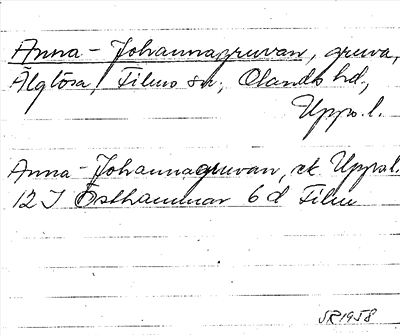 Anna-Johannagruvan, gruva,
Älglösa, Films sn, Olands hd,
Upps. l.
Anna-Johannagruvan, ek Upps.l.
12 I Östhammar 6 d Film
SR 1958